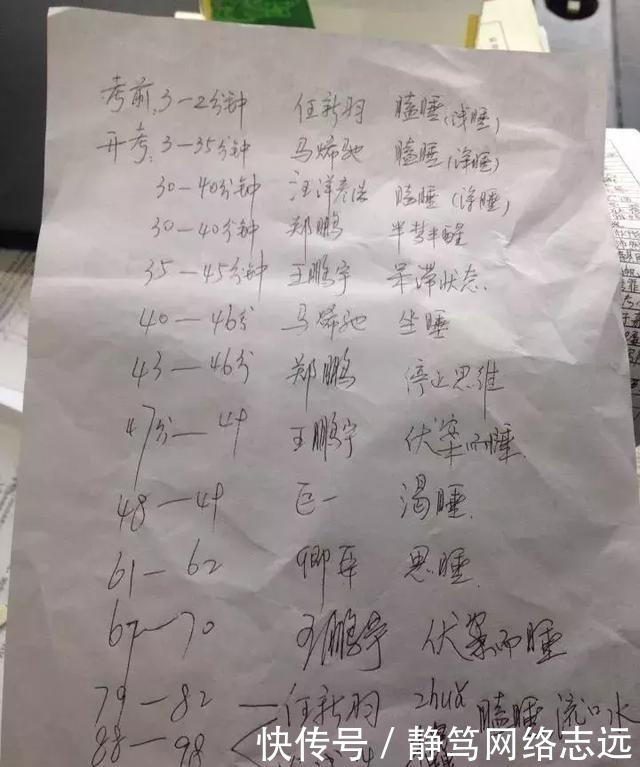 考前:3—2分钟 任新羽 瞌睡(浅睡)
开考:3—35分钟 马烯驰 瞌睡(深睡)
30—40分钟 汪洋 瞌睡(深睡)
30—40分钟 郑鹏 半梦半醒
35—45分钟 王鹏宇 呆滞状态.
40—46分 马烯驰 坐睡
43—46分 郑鹏 停止思维
47分—49 王鹏宇 伏案而睡
48—49 巨一 渴睡.
61—62 思睡.
67—70 王鹏宇 伏案而睡
79—82 —任新羽 zhuā 瞌睡流口水
88—98
快传号/静笃网络志远